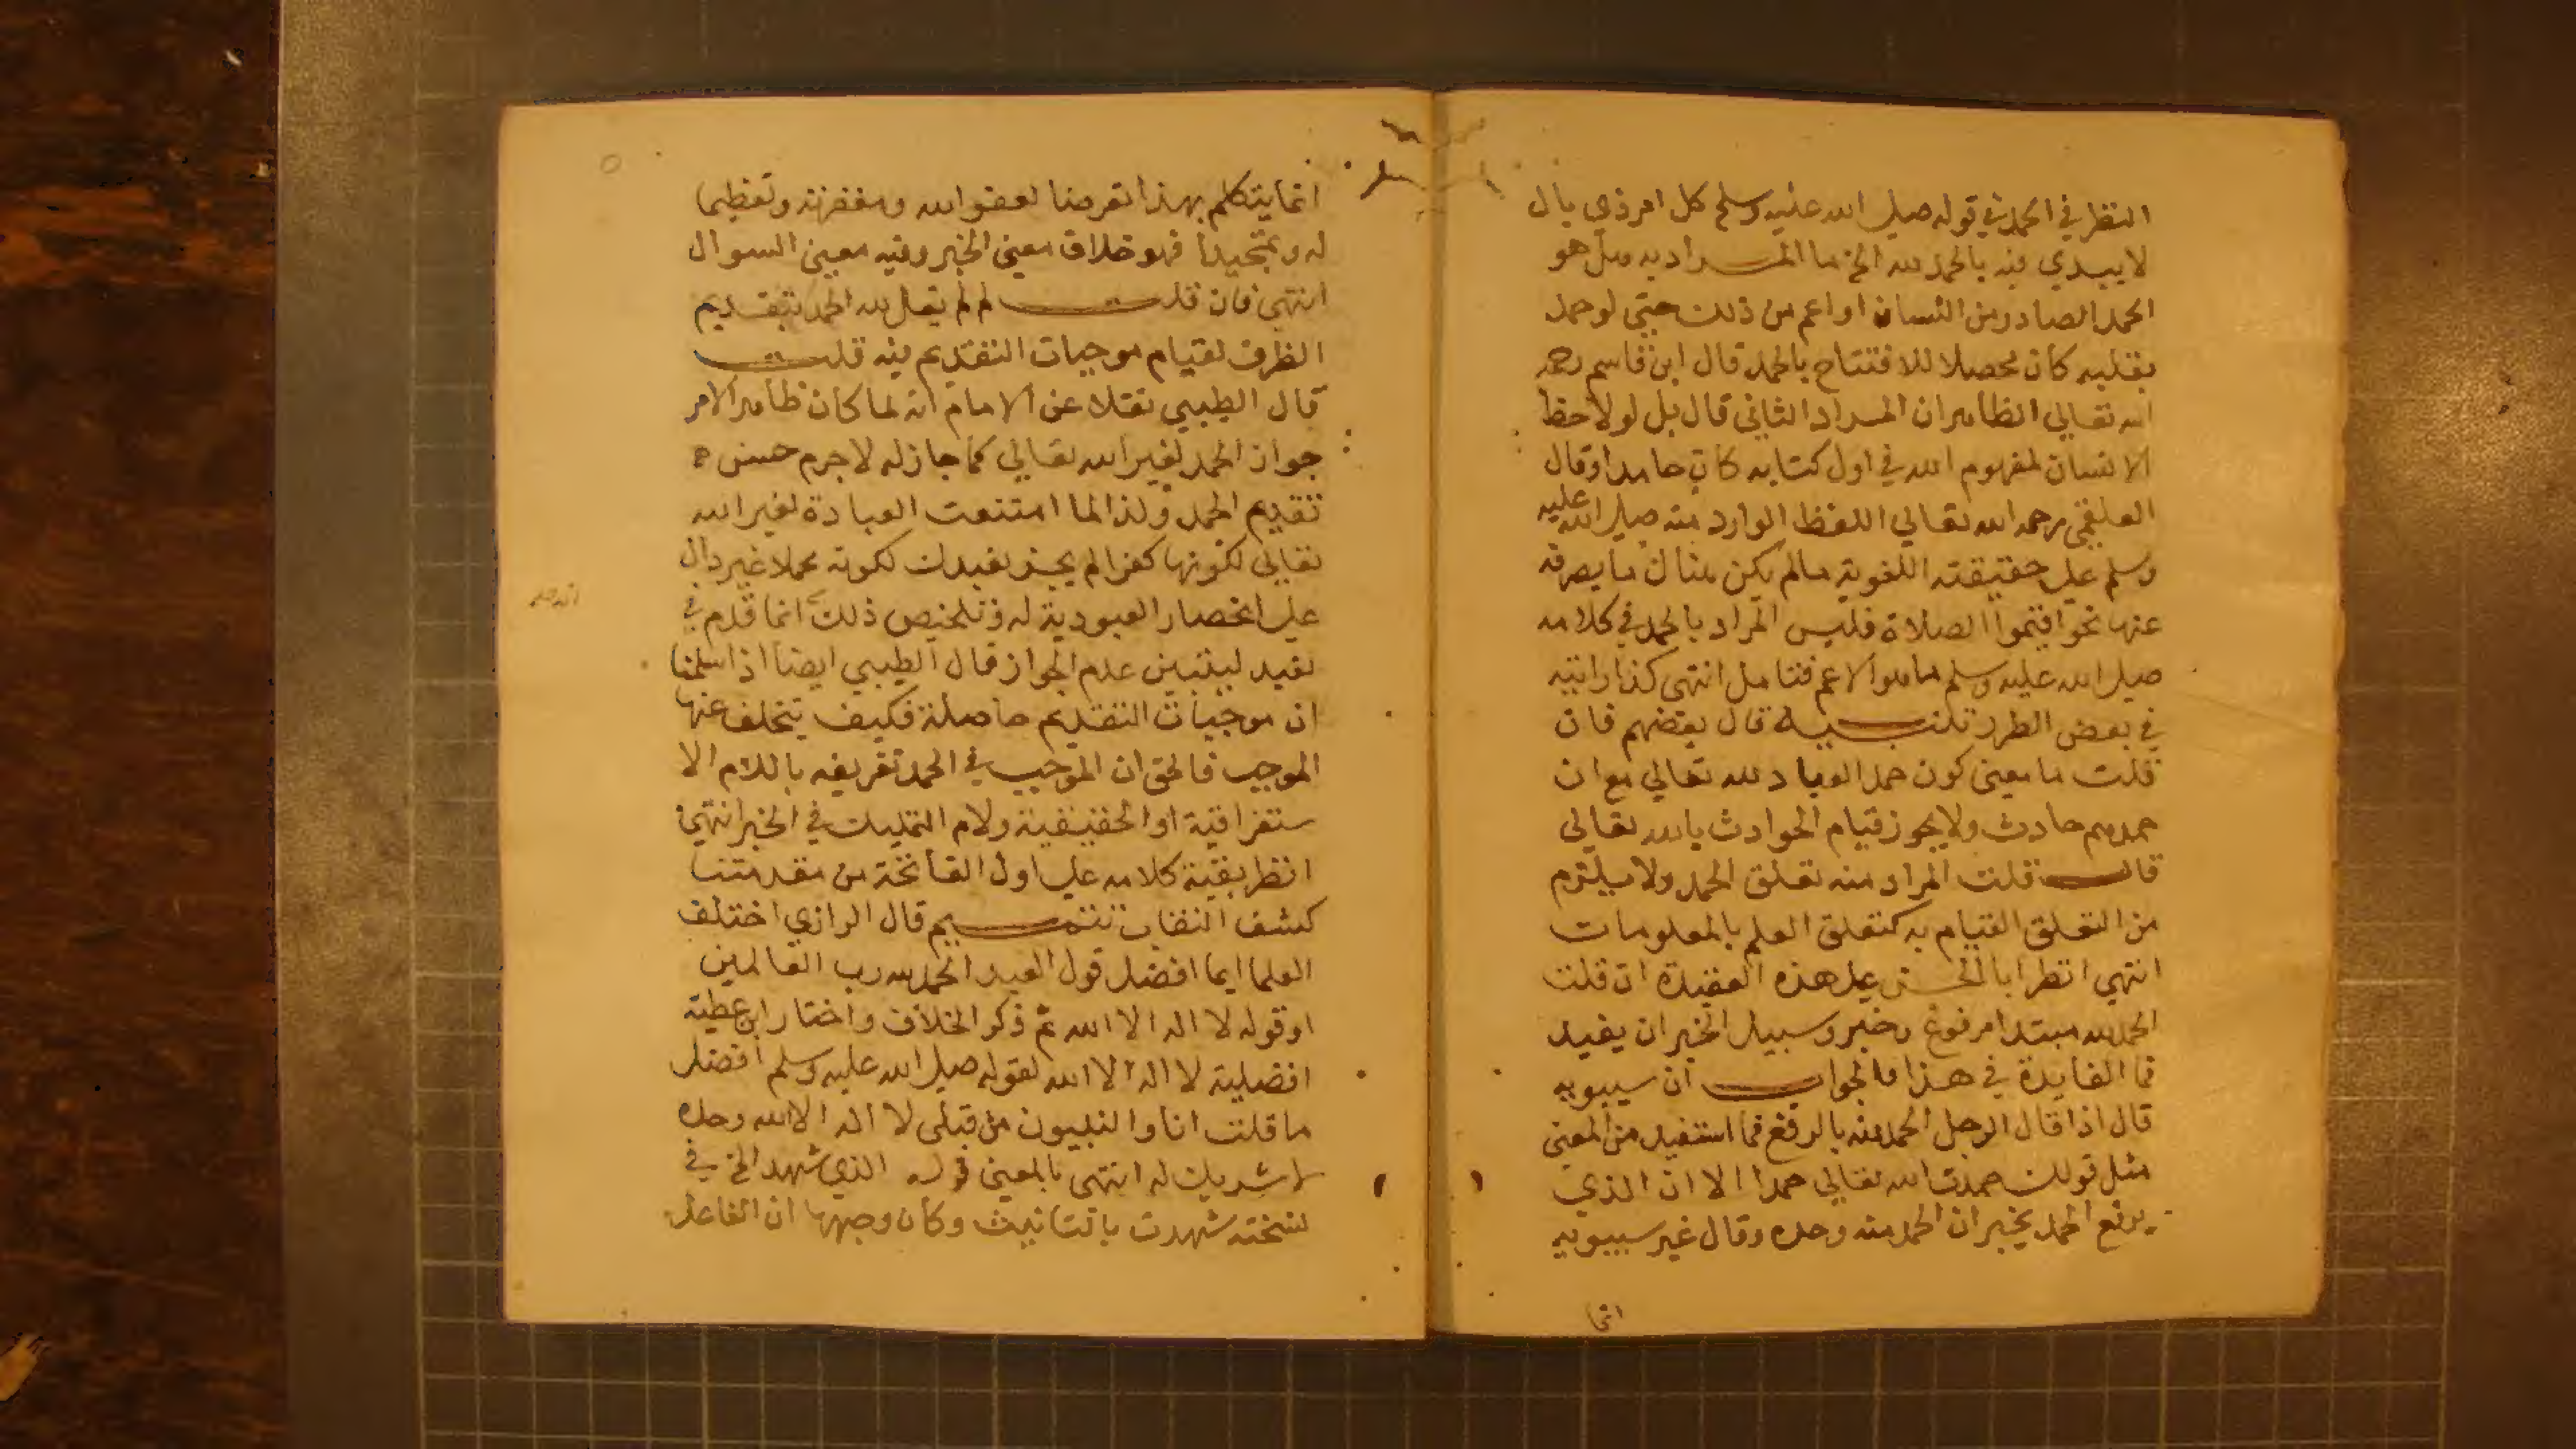 النظر في الحمد في قوله صلي الله عليه وسلم كل امر ذي بال
لا يبدي فيه بالحمد لله الخ ما المراد به هل هو
الحمد الصادر من اللسان او اعم من ذلك حتي لو حمد
بقلبه كان محصلا للافتتاح بالحمد قال ابن قاسم رحمه
الله تعالي الظاهر ان المراد الثاني قال بل لو لاحظ
الانسان لمفهوم الله في اول كتابه كان حامدا وقال
العلقمي رحمه الله تعالي اللفظ الوارد منه صلي الله عليه
وسلم علي حقيقته اللغوية مالم يكن هناك ما يصرفه
عنها نحو اقيموا الصلاة فليس المراد بالحمد في كلامه
صلي الله عليه وسلم ما هو الاعم فتامل انتهي كذا رايته
في بعض الطرر تنبيه قال بعضهم فان
قلت ما معني كون حمد العباد لله تعالي مع ان
حمدهم حادث ولا يجوز قيام الحوادث بالله تعالي
قال قلت المراد منه تعلق الحمد ولا يلزم
من التعلق القيام به كتعلق العلم بالمعلومات
انتهي انظر ابا الحسن علي هذه العقيدة ان قلت
الحمد لله مبتدا مرفوع وخبر وسبيل الخبر ان يفيد
فما الفايدة في هذا فالجواب ان سيبويه
قال اذا قال الرجل الحمد لله بالرفع فما استفيد من المعني
مثل قولك حمدت الله تعالي حمدا الا ان الذي
يرفع الحمد يخبر ان الحمد منه وحده وقال غير سيبويه
انما
انما يتكلم بهذا تعرضا لعفو الله ومغفرته وتعظيما
له وتمجيدا فهو خلاف معني الخبر وفيه معني السوال
انتهي فان قلت لم لم يقل لله الحمد بتقديم
الظرف لقيام موجبات التقديم فيه قلت
قال الطيبي نقلا عن الامام انه لما كان ظاهر الامر
جواز الحمد لغير الله تعالي كما جاز له لاجرم حسن
تقديم الحمد ولذا لما امتنعت العبادة لغير الله
تعالي لكونها كفرا لم يجز نعبدك لكونه محملا غير دال
علي انحصار العبودية له وتلخيص ذلك انما قدم في
نعبد ليتبين عدم الجواز قال الطيبي ايضا اذا سلمنا
ان موجبات التقديم حاصلة فكيف يتخلف عنها
الموجب فالحق ان الموجب في الحمد تعريفه باللام الا
ستغراقية او الحقيقية ولام التمليك في الخبر انتهي
انظر بقية كلامه علي اول الفاتحة من مقدمتنا
كشف النقاب تتميم قال الرازي اختلف
العلما ايما افضل قول العبد الحمد لله رب العالمين
او قوله لا اله الا الله ثم ذكر الخلاف واختار ابن عطية
افضلية لا اله الا الله لقوله صلي الله عليه وسلم افضل
ما قلت انا والنبيون من قبلي لا اله الا الله وحده
لا شريك له انتهي بالمعني قوله الذي شهد الخ في
نسخته شهدت بالتانيث وكان وجهها ان الفاعل